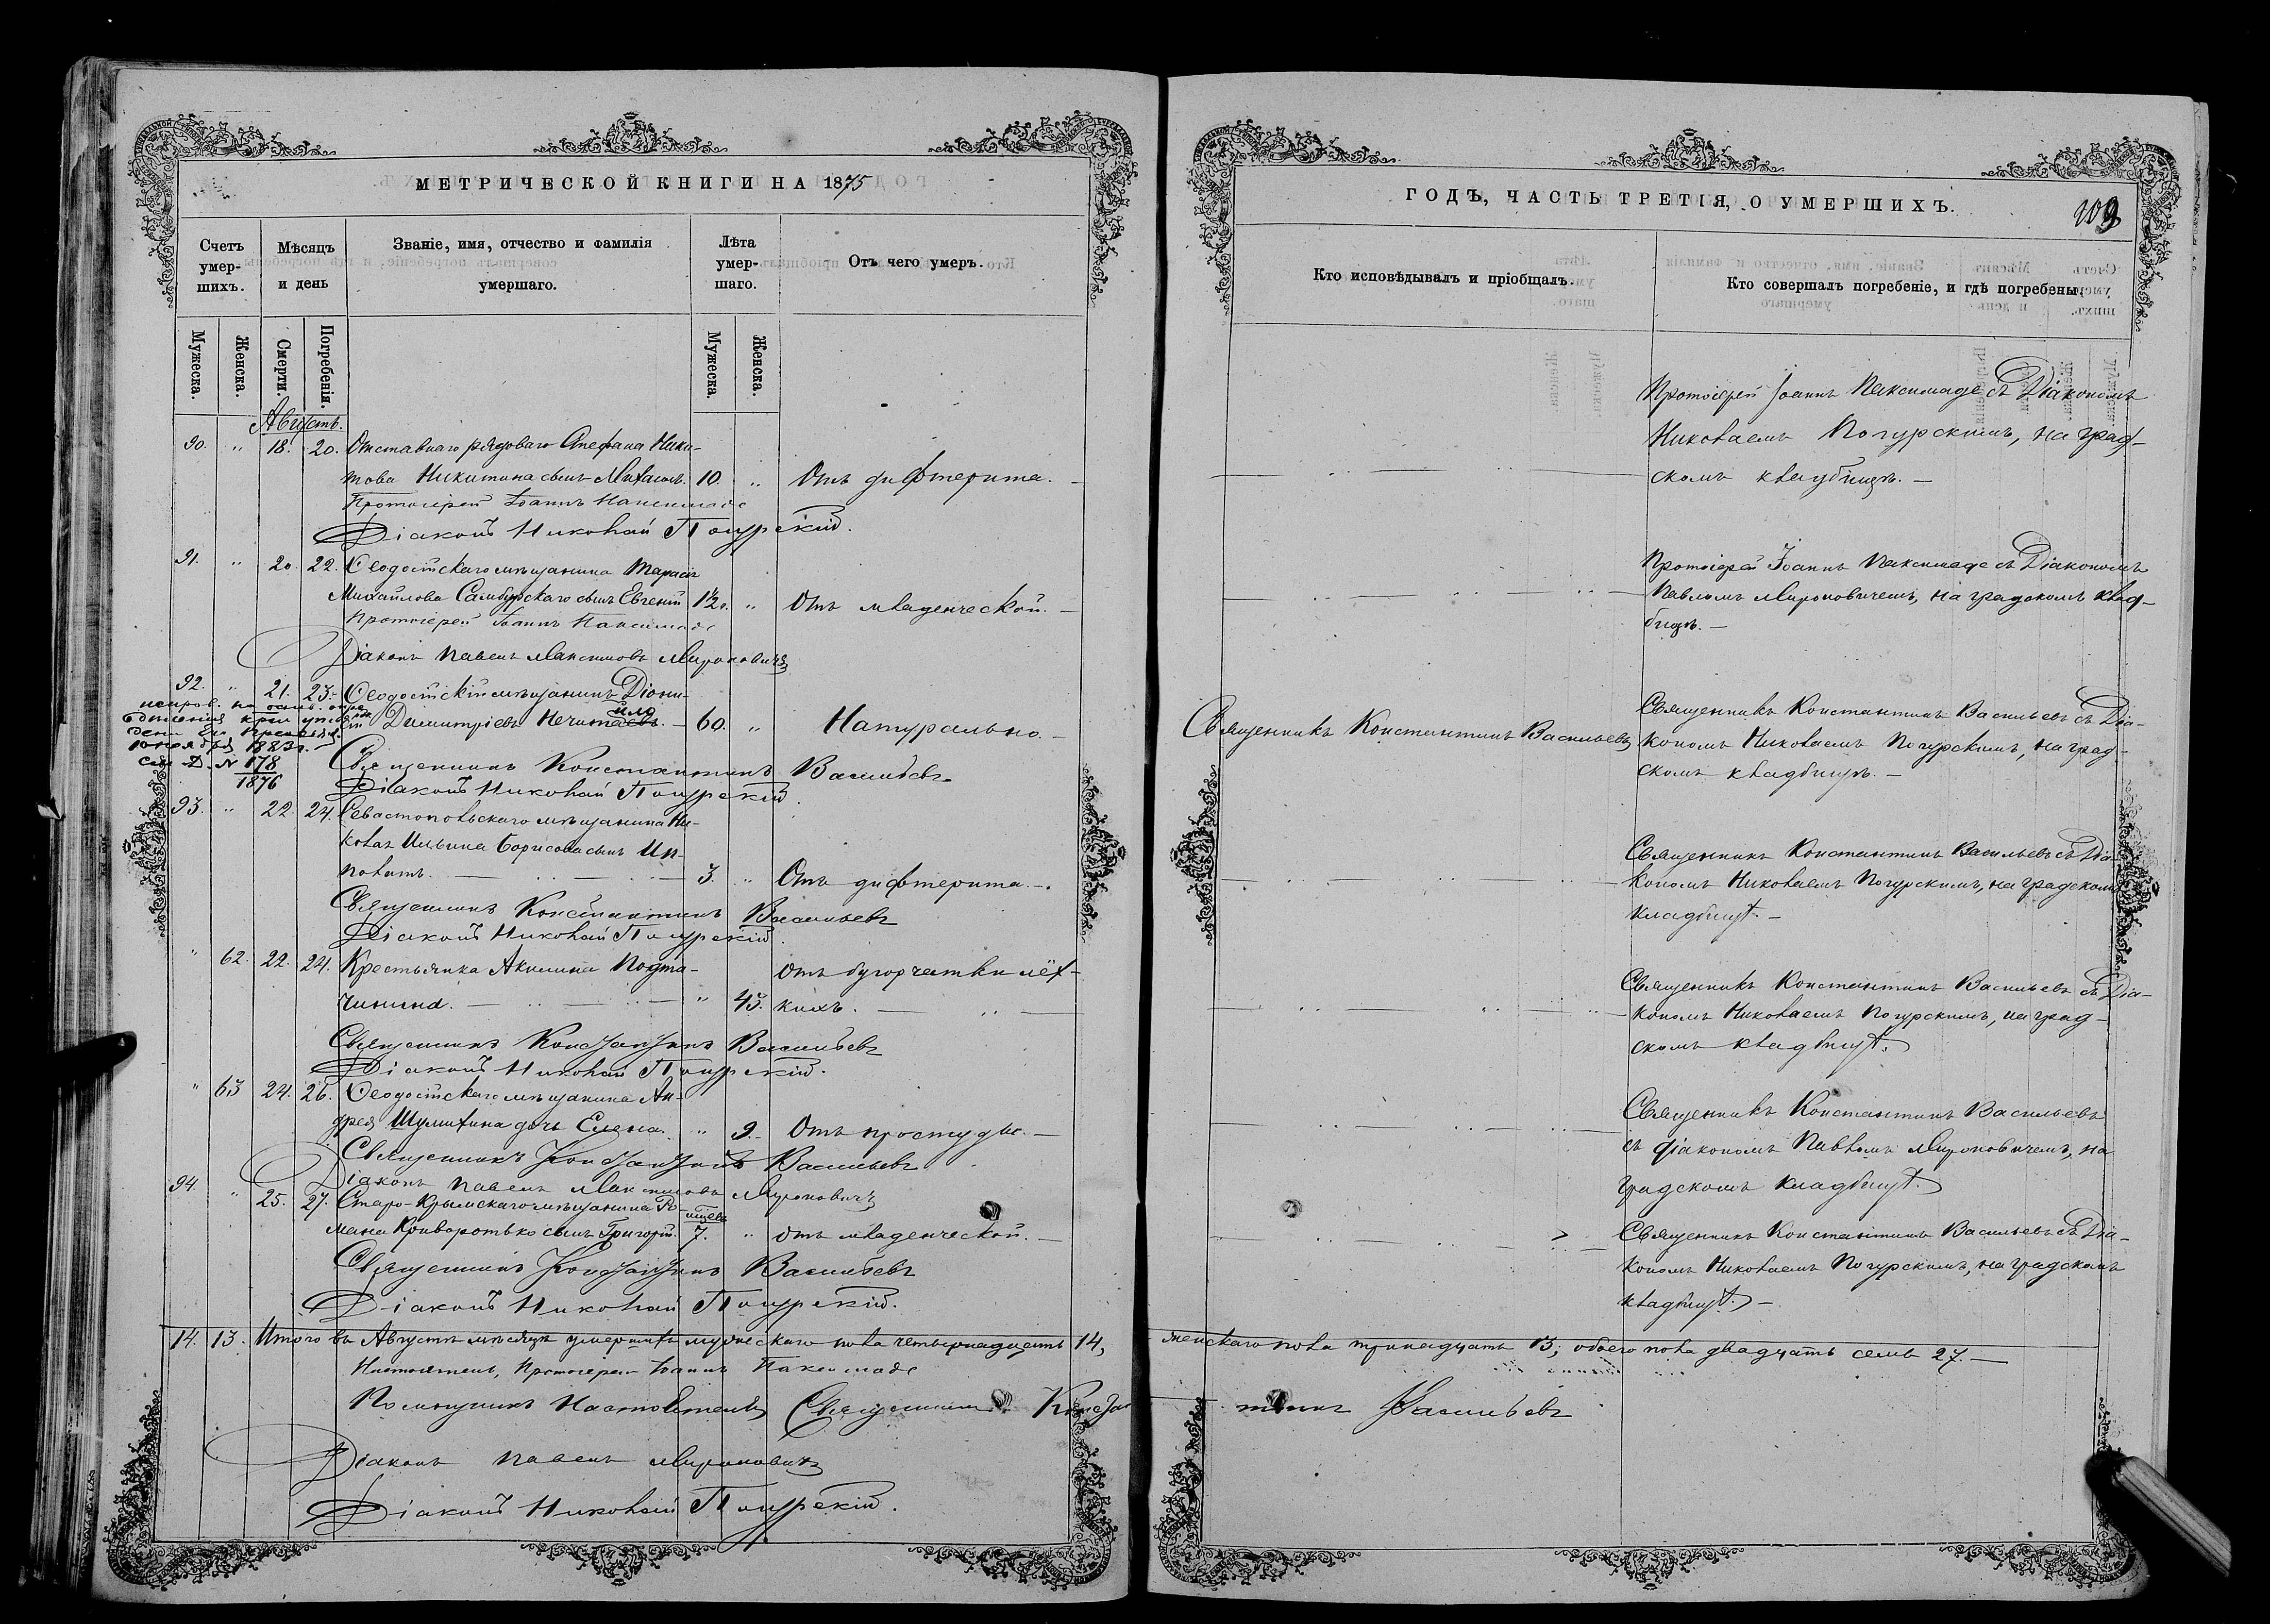 МЕТРИЧЕСКОЙ КНИГИ НА 1875
Счетъ умер-шихъ.
Мѣсяцъ и день
Званіе, имя, отчество и фамилія умершаго.
Лѣта умер-шаго.
Отъ чего умеръ.
Мужеска.
Женска.
Смерти.
Погребенія.
Мужеска.
Женска.
Августъ.
90. " 18. 20. Отставнаго рядоваго Стефана Ники-
това Никитина сынъ Михаилъ. 10. " Отъ дифтерита. —
Протоіерей Іоаннъ Паксимаде
Діаконъ Николай Погурскій.
91. " 20. 22. Ѳеодосійскаго мѣщанина Тарасія
Михайлова Самбурскаго сынъ Евгеній 1½. " Отъ младенческой. —
Протоіерей Іоаннъ Паксимаде
Діаконъ Павелъ Максимовъ Мироновичъ
92. " 21. 23. Ѳеодосійскій мѣщанинъ Діони-
сій Димитріевъ Нечитаевъ. — 60. " Натурально. —
ило
исправ. на осн. опре
дѣленія
10 ноября 1883 г.
см. Д. № 178
1876
Священникъ Константинъ Васильевъ
Діаконъ Николай Погурскій
93. " 22 24. Севастопольскаго мѣщанина Ни-
колая Ильина Борисова сынъ Ип-
политъ. — 3. " Отъ дифтерита. —
Священникъ Константинъ Васильевъ
Діаконъ Николай Погурскій
" 62. 22. 24. Крестьянка Акилина Подта-
чинина. — " 45. Отъ бугорчатки лёг-
кихъ. —
Священникъ Константинъ Васильевъ
Діаконъ Николай Погурскій.
" 63 24. 26. Ѳеодосійскаго мѣщанина Ан-
дрея Шумихина дочь Елена. " 9. Отъ простуды. —
Священникъ Константинъ Васильевъ
Діаконъ Павелъ Максимовъ Мироновичъ
94. " 25. 27. Старо-Крымскаго мѣщанина Ро-
мана Криворотько сынъ Григорій. 7. " отъ младенческой. —
Священникъ Константинъ Васильевъ
Діаконъ Николай Погурскій.
14. 13. Итого въ Августѣ мѣсяцѣ умершихъ мужескаго пола четырнадцать 14,
Настоятель, Протоіерей Іоаннъ Паксимаде
Помощникъ Настоятеля Священникъ Констан
Діаконъ Павелъ Мироновичъ
Діаконъ Николай Погурскій.
ГОДЪ, ЧАСТЬ ТРЕТІЯ, О УМЕРШИХЪ.
Кто исповѣдывалъ и пріобщалъ.
Кто совершалъ погребеніе, и гдѣ погребены.
Протоіерей Іоаннъ Паксимаде съ Діакономъ
Николаемъ Погурскимъ, на град-
скомъ кладбищѣ. —
Протоіерей Іоаннъ Паксимаде съ Діакономъ
Павломъ Мироновичемъ, на градскомъ клад-
бищѣ. —
Священникъ Константинъ Васильевъ
Священникъ Константинъ Васильевъ съ Діа-
кономъ Николаемъ Погурскимъ, на град-
скомъ кладбищѣ. —
Священникъ Константинъ Васильевъ съ Діа-
кономъ Николаемъ Погурскимъ, на градскомъ
кладбищѣ. —
Священникъ Константинъ Васильевъ съ Діа-
кономъ Николаемъ Погурскимъ, на град-
скомъ кладбищѣ.
Священникъ Константинъ Васильевъ
съ діакономъ Павломъ Мироновичемъ, на
градскомъ кладбищѣ.
Священникъ Константинъ Васильевъ съ Діа-
кономъ Николаемъ Погурскимъ, на градскомъ
кладбищѣ. —
женскаго пола тринадцать 13; обоего пола двадцать семь 27. —
тинъ Васильевъ